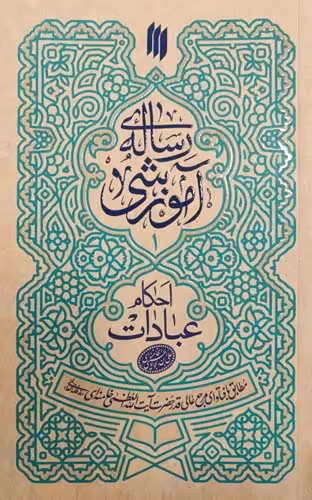 رساله‌ی
آموزشی
۱
احکام
عبادات
مطابق با فتاوای مرجع عالی قدر حضرت آیت الله العظمی خامنه‌ای